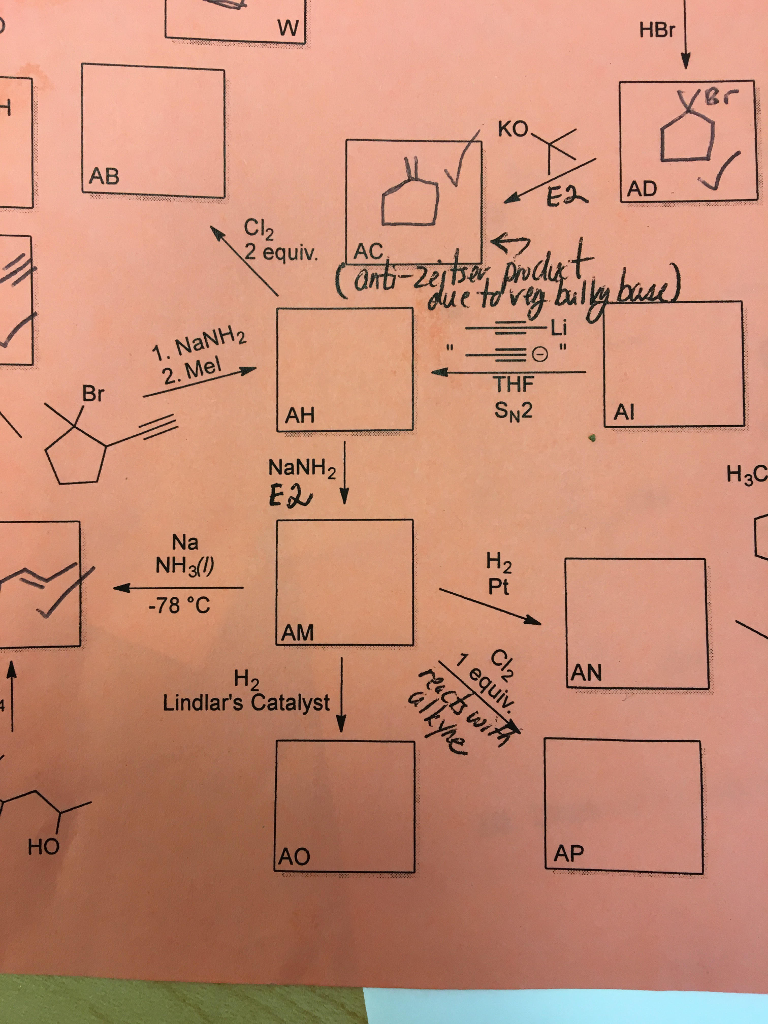 W
HBr
H
AB
KO
Br
E2
AD
AC
Cl2
2 equiv.
(anti-zeitser product
due to very bulky base)
1. NaNH2
2. MeI
Br
Li
" ⊖ "
THF
SN2
AH
AI
NaNH2
E2
H3C
Na
NH3(l)
-78 °C
AM
H2
Pt
AN
H2
Lindlar's Catalyst
Cl2
1 equiv.
reacts with
alkyne
4
AO
AP
HO